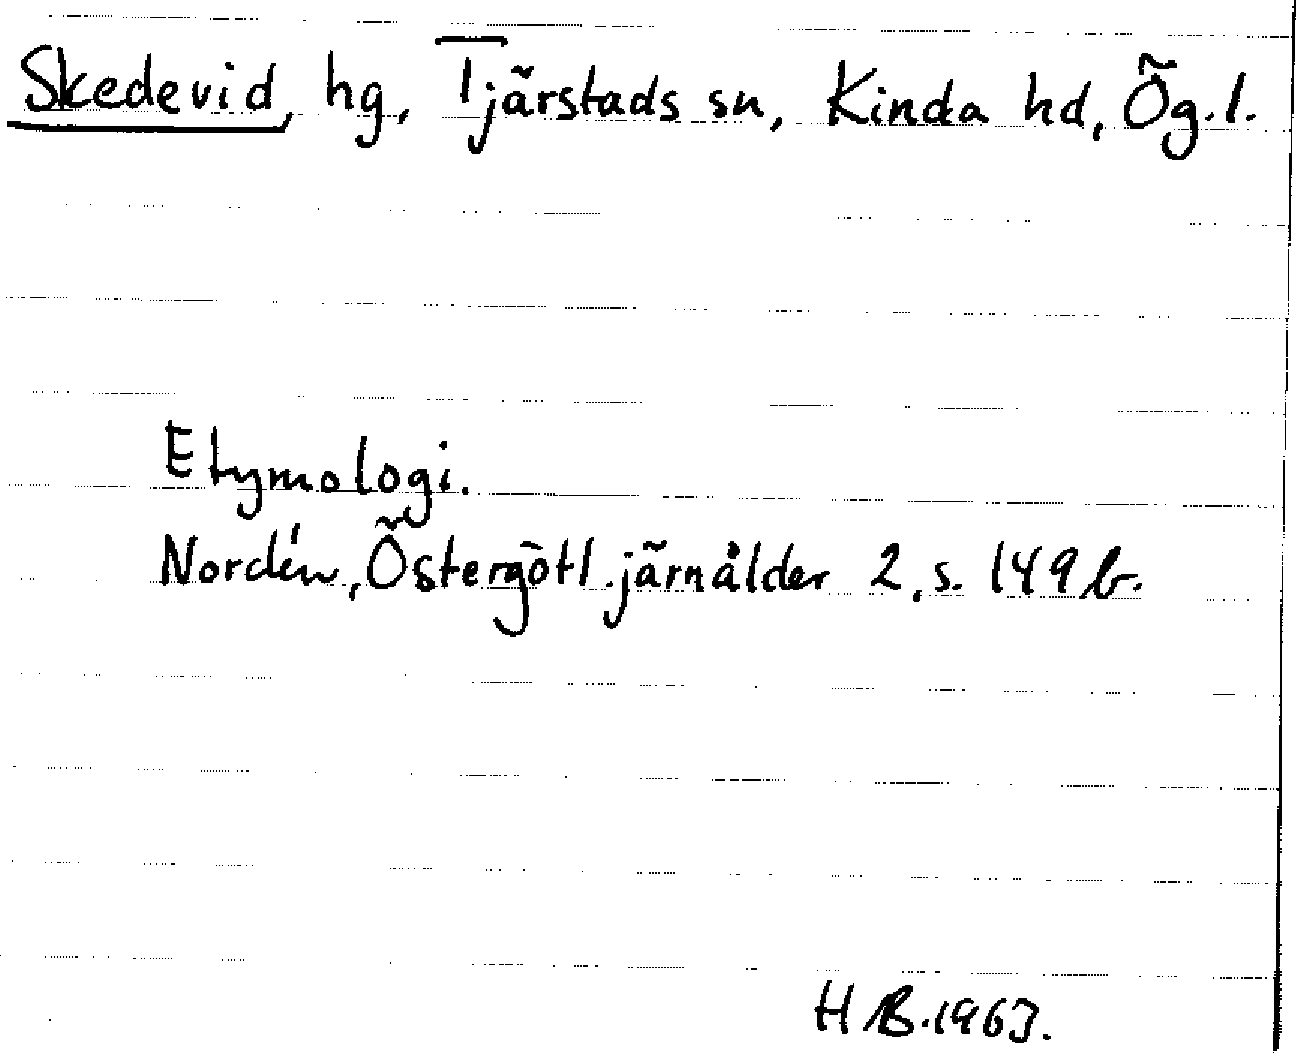 Skedevid, hg, Tjärstads sn, Kinda hd, Ög. l.
Etymologi.
Nordén, Östergötl. järnålder 2, s. 149 b.
H B. 1963.